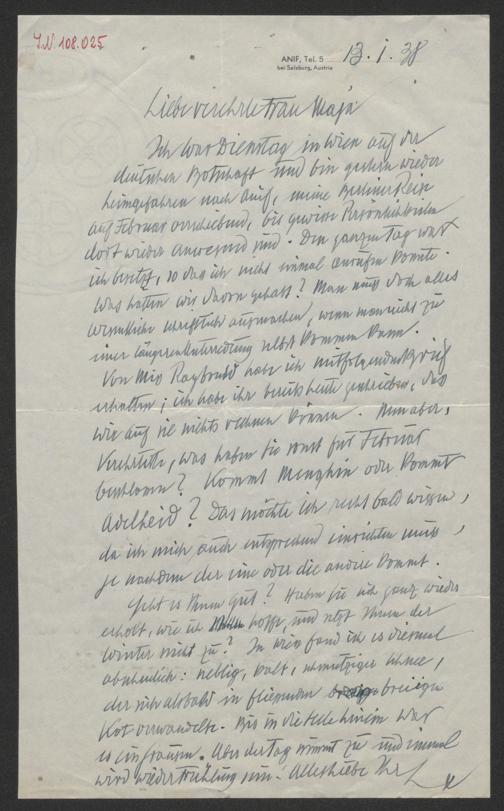 I.N. 108.025
ANIF, Tel. 5
bei Salzburg, Austria
13.I.38
Liebe verehrte Frau Maja
Ich war Dienstag in Wien auf der
deutschen Botschaft und bin gestern wieder
heimgefahren nach Anif, meine Berliner Reise
auf Februar verschiebend, bis gewisse Persönlichkeiten
dort wieder anwesend sind. Den ganzen Tag war
ich besetzt, so daß ich nicht einmal anrufen konnte.
Was hätten wir davon gehabt? Man muß doch alles
wesentliche schriftlich ausmachen, wenn man nicht zu
einer längeren Unterredung selbst kommen kann.
Von Miss habe ich mitfolgenden Brief
erhalten; ich habe ihr bereits heute geschrieben, daß
wir auf sie nichts rechnen können. Nun aber,
Verehrteste, was haben Sie sonst für Februar
beschlossen? Kommt Menghin oder kommt
Adelheid? Das möchte ich recht bald wissen,
da ich mich auch entsprechend einrichten muß,
je nachdem der eine oder die andere kommt.
Geht es Ihnen gut? Haben Sie sich ganz wieder
erholt, wie ich hoffe, und setzt Ihnen der
Winter nicht zu? In Wien fand ich es diesmal
abscheulich: neblig, kalt, schmutziger Schnee,
der sich alsbald in fliessenden breiigen
Kot verwandelte. Bis in die Seele hinein war
es ein Grausen. Aber der Tag nimmt zu und einmal
wird wieder Frühling sein. Alles Liebe Ihr